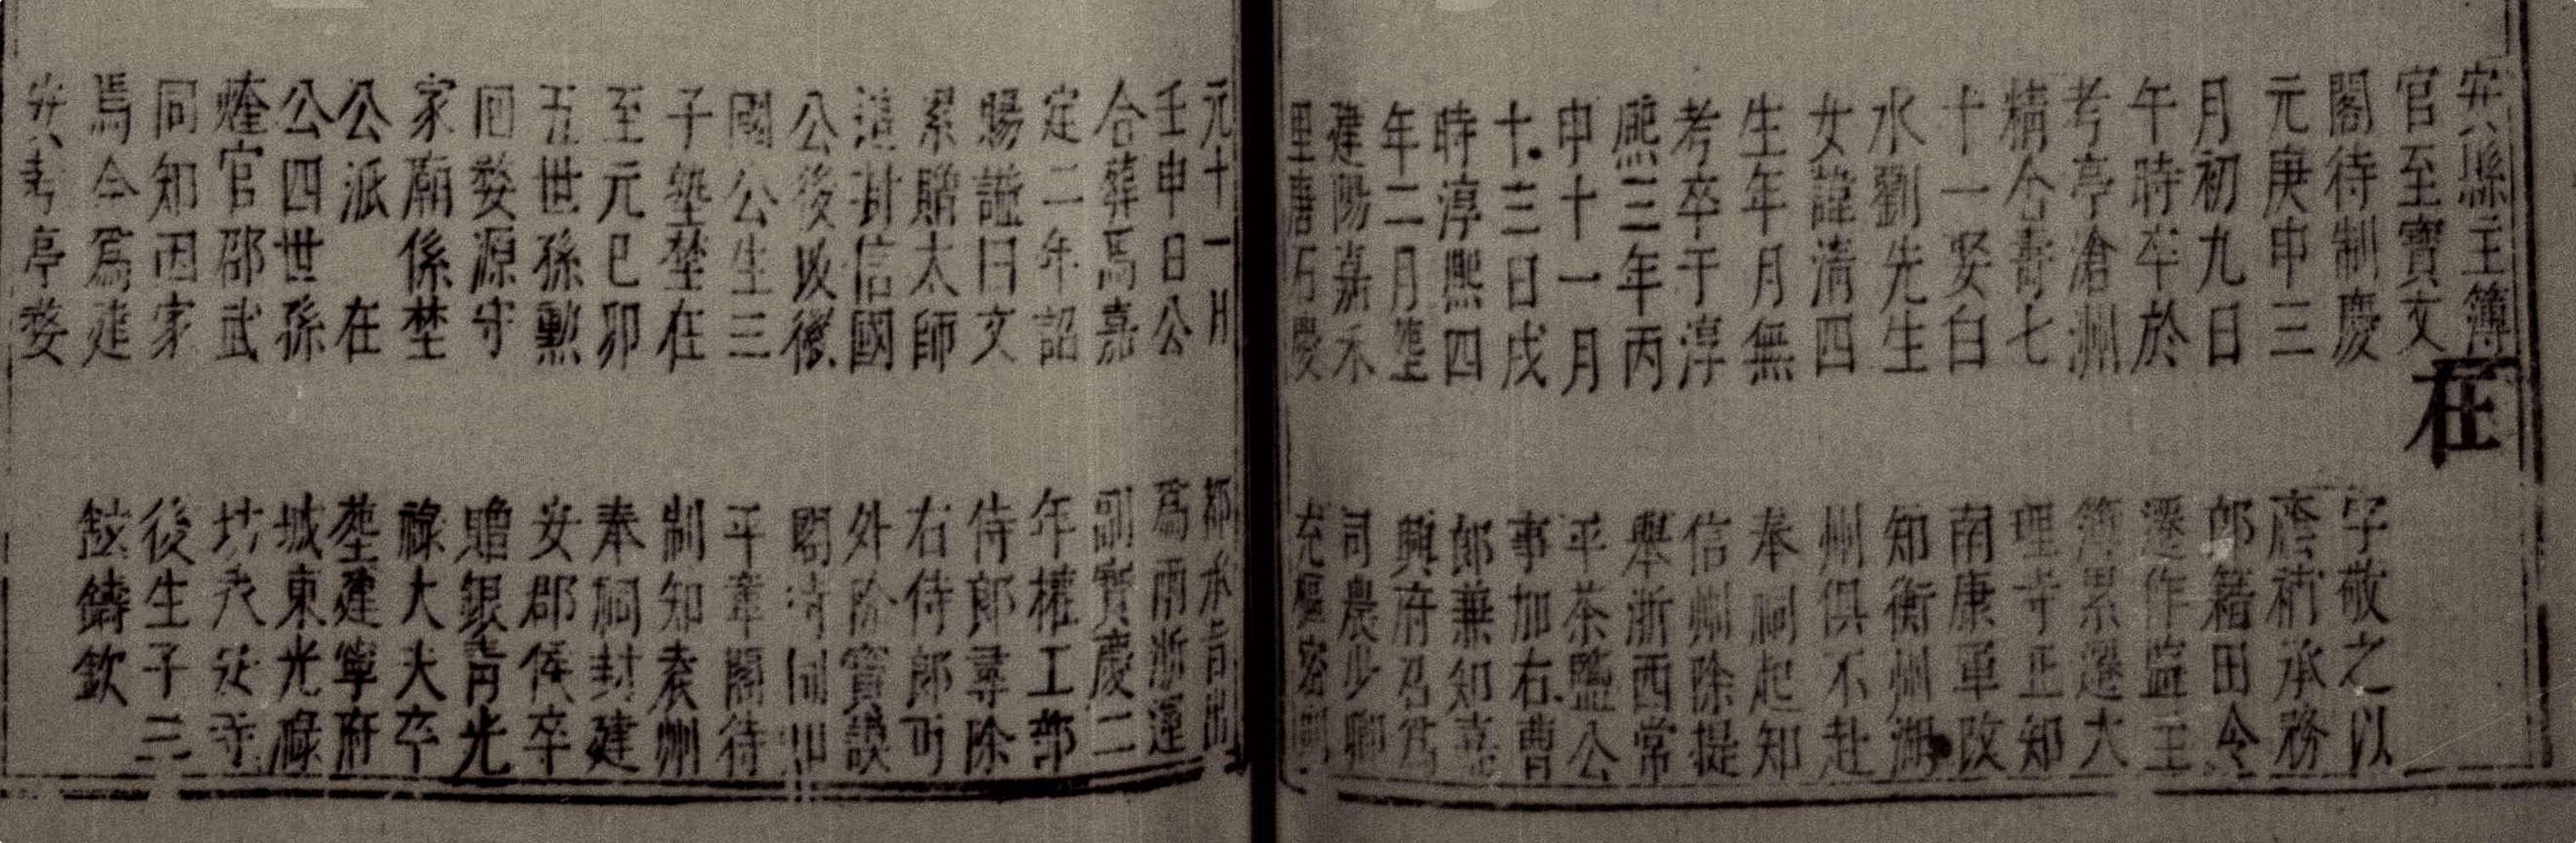 安縣主簿
官至寶文
閣待制慶
元庚申三
月初九日
午時卒於
考亭滄洲
精舍壽七
十一娶白
水劉先生
女諱清四
生年月無
考卒于淳
熈三年丙
申十一月
十三日戌
時淳熈四
年二月塟
建陽嘉禾
里唐石慶
元十一月
壬申日公
合葬焉嘉
定二年詔
賜諡曰文
累贈太師
追封信國
公後改徽
國公生三
子塾埜在
至元巳卯
五世孫勲
回婺源守
家廟係埜
公派 在
公四世孫
煃官邵武
同知因家
焉今為建
安考亭婺
在
字敬之以
廕補承務
郎籍田令
遷作監主
簿累遷大
理寺正知
南康軍改
知衡州湖
州俱不赴
奉祠起知
信州除提
舉浙西常
平茶鹽公
事加右曹
郎兼知嘉
興府召為
司農少卿
充樞密副
都承旨出
為兩浙運
副寶慶二
年權工部
侍郎尋除
右侍郎可
外除寶謨
閣待制知
平章閣待
制知袁州
奉祠封建
安郡侯卒
贈銀青光
祿大夫卒
塟建寧府
城東光祿
坊永安寺
後生子三
鉉鑄欽